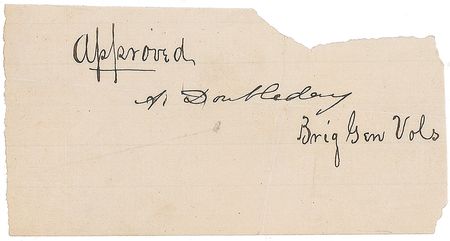 Approved,
A. Doubleday
Brig Gen Vols